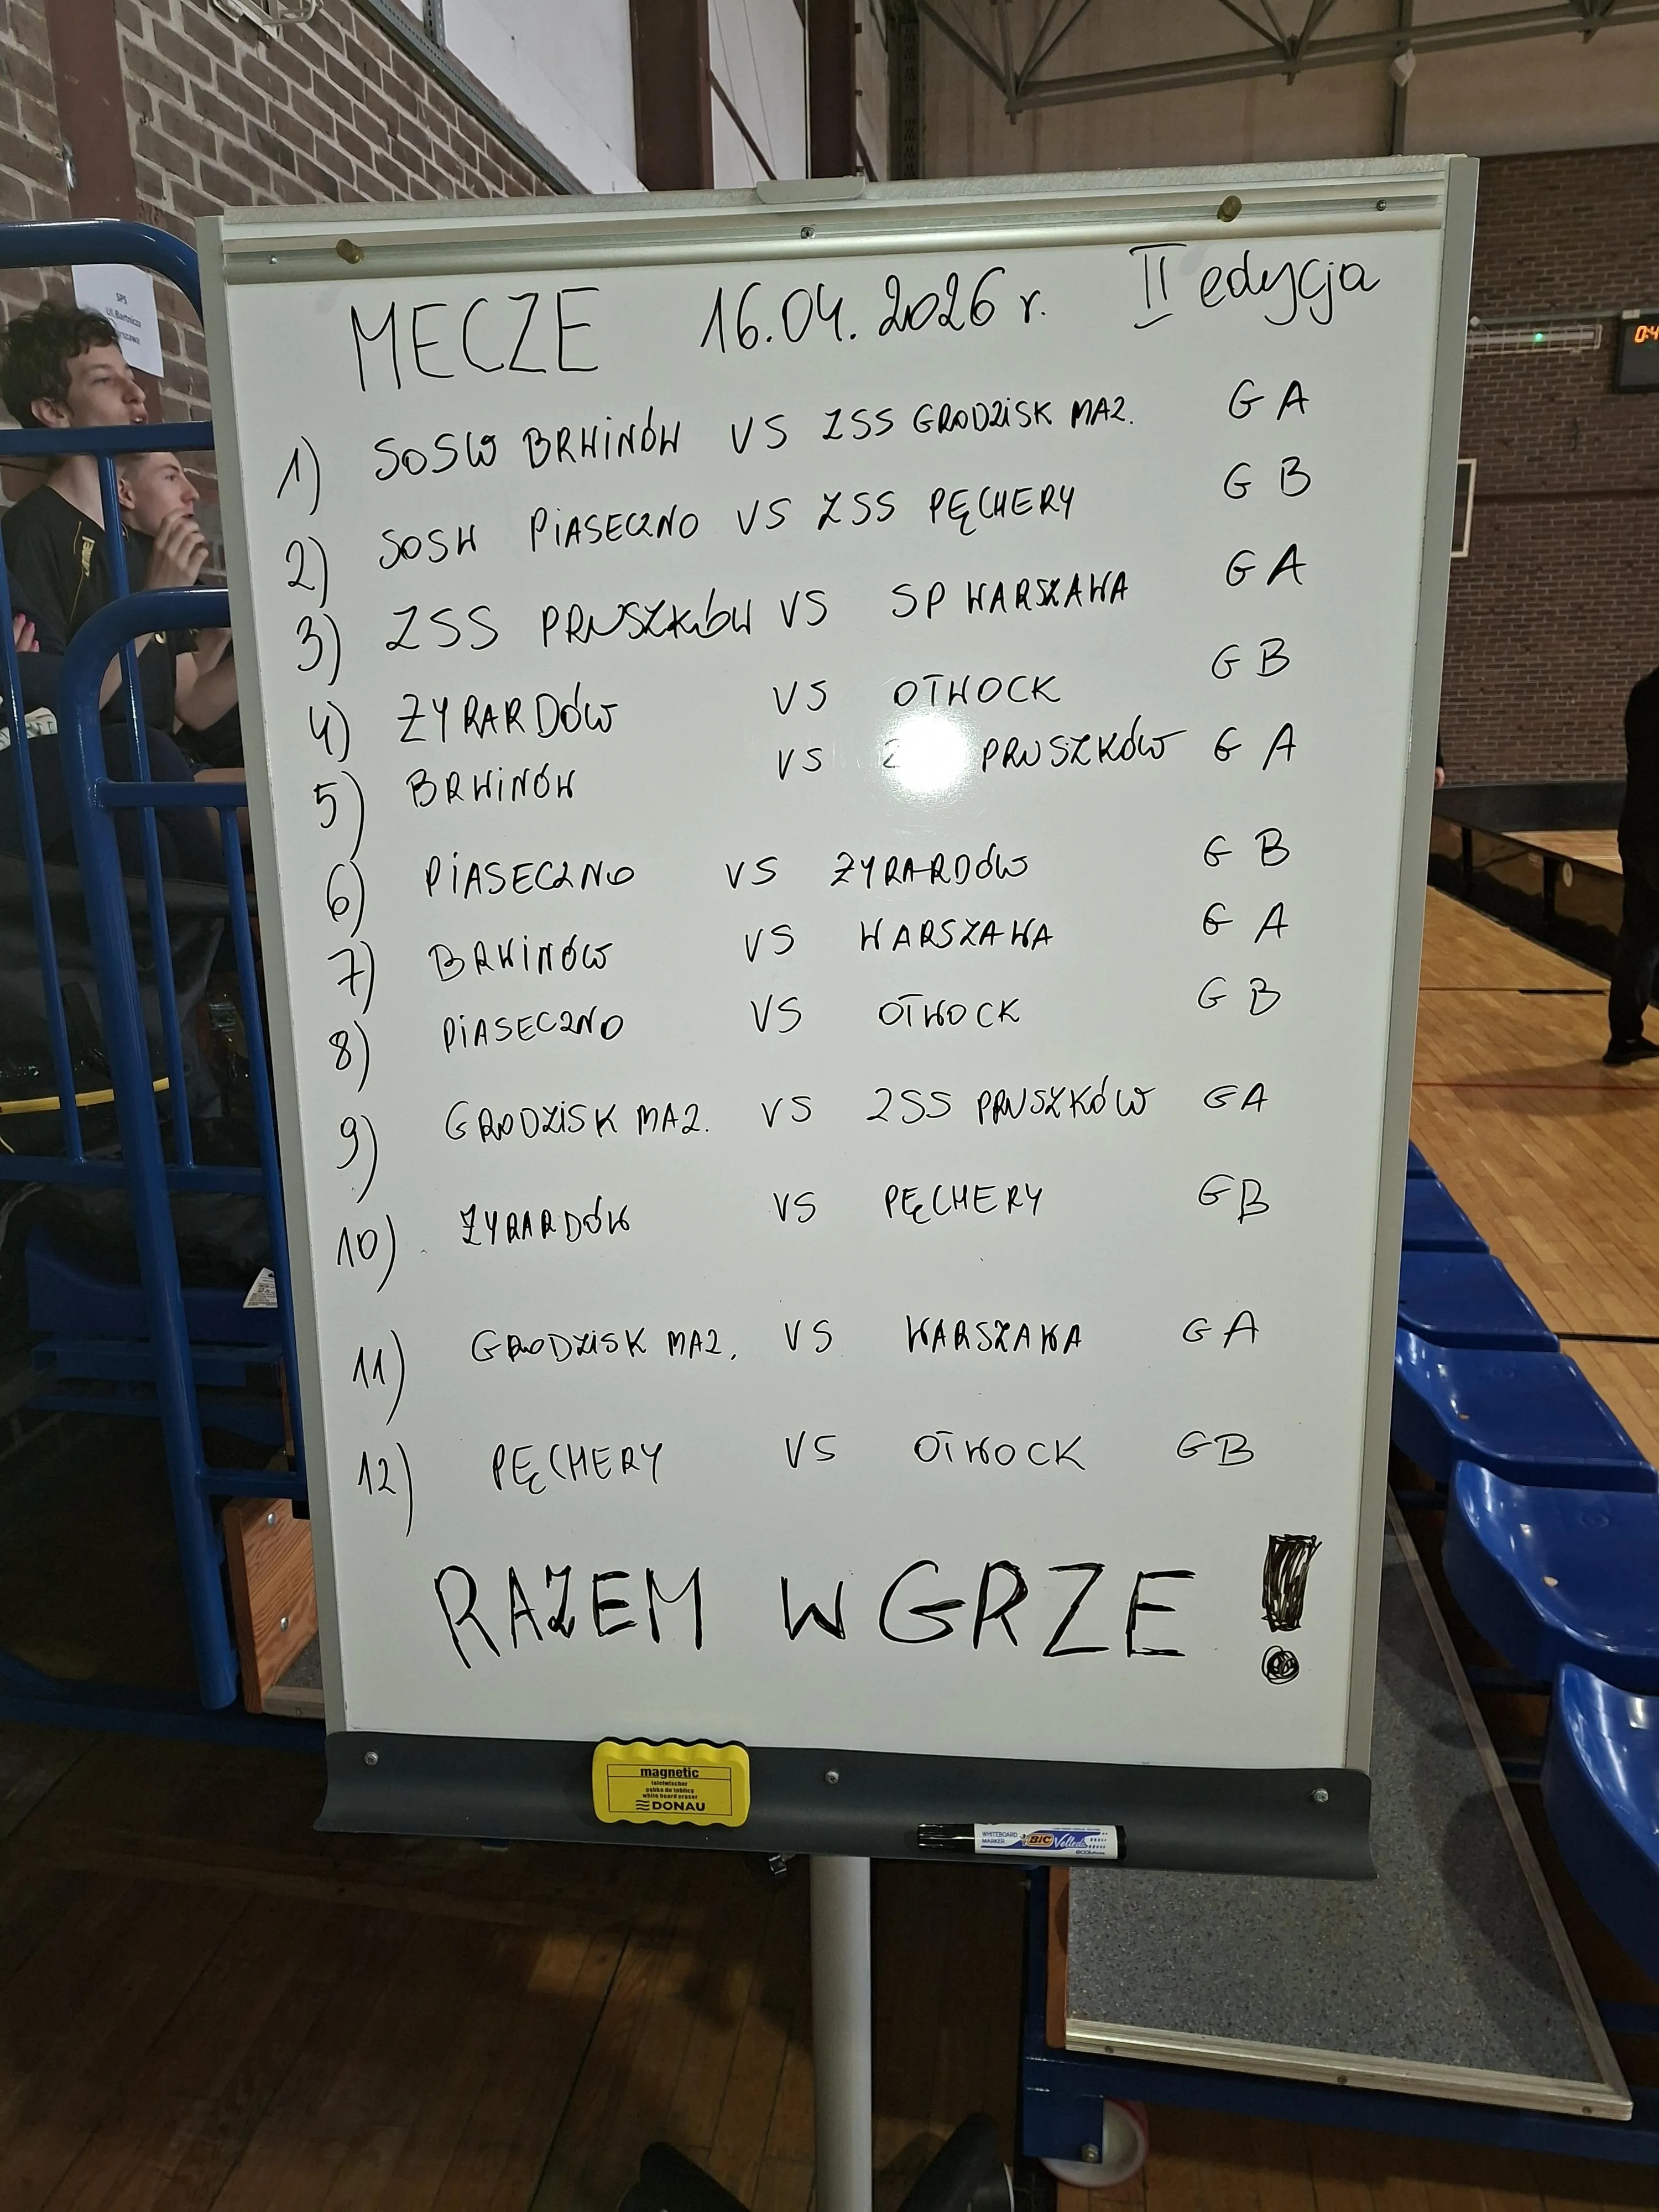 SPS
Ul. Bartnicza
MECZE 16.04.2026 r. II edycja
1) SOSW BRWINÓW VS ZSS GRODZISK MAZ. G A
2) SOSW PIASECZNO VS ZSS PĘCHERY G B
3) ZSS PRUSZKÓW VS SP WARSZAWA G A
4) ŻYRARDÓW VS OTWOCK G B
5) BRWINÓW VS PRUSZKÓW G A
6) PIASECZNO VS ŻYRARDÓW G B
7) BRWINÓW VS WARSZAWA G A
8) PIASECZNO VS OTWOCK G B
9) GRODZISK MAZ. VS ZSS PRUSZKÓW G A
10) ŻYRARDÓW VS PĘCHERY G B
11) GRODZISK MAZ. VS WARSZAWA G A
12) PĘCHERY VS OTWOCK G B
RAZEM W GRZE!
magnetic
tafelwischer
gąbka do tablicy
white board eraser
DONAU
WHITEBOARD
MARKER
BIC Velleda